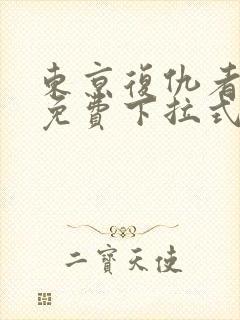 東京復仇者
免費下拉式
二寶天使